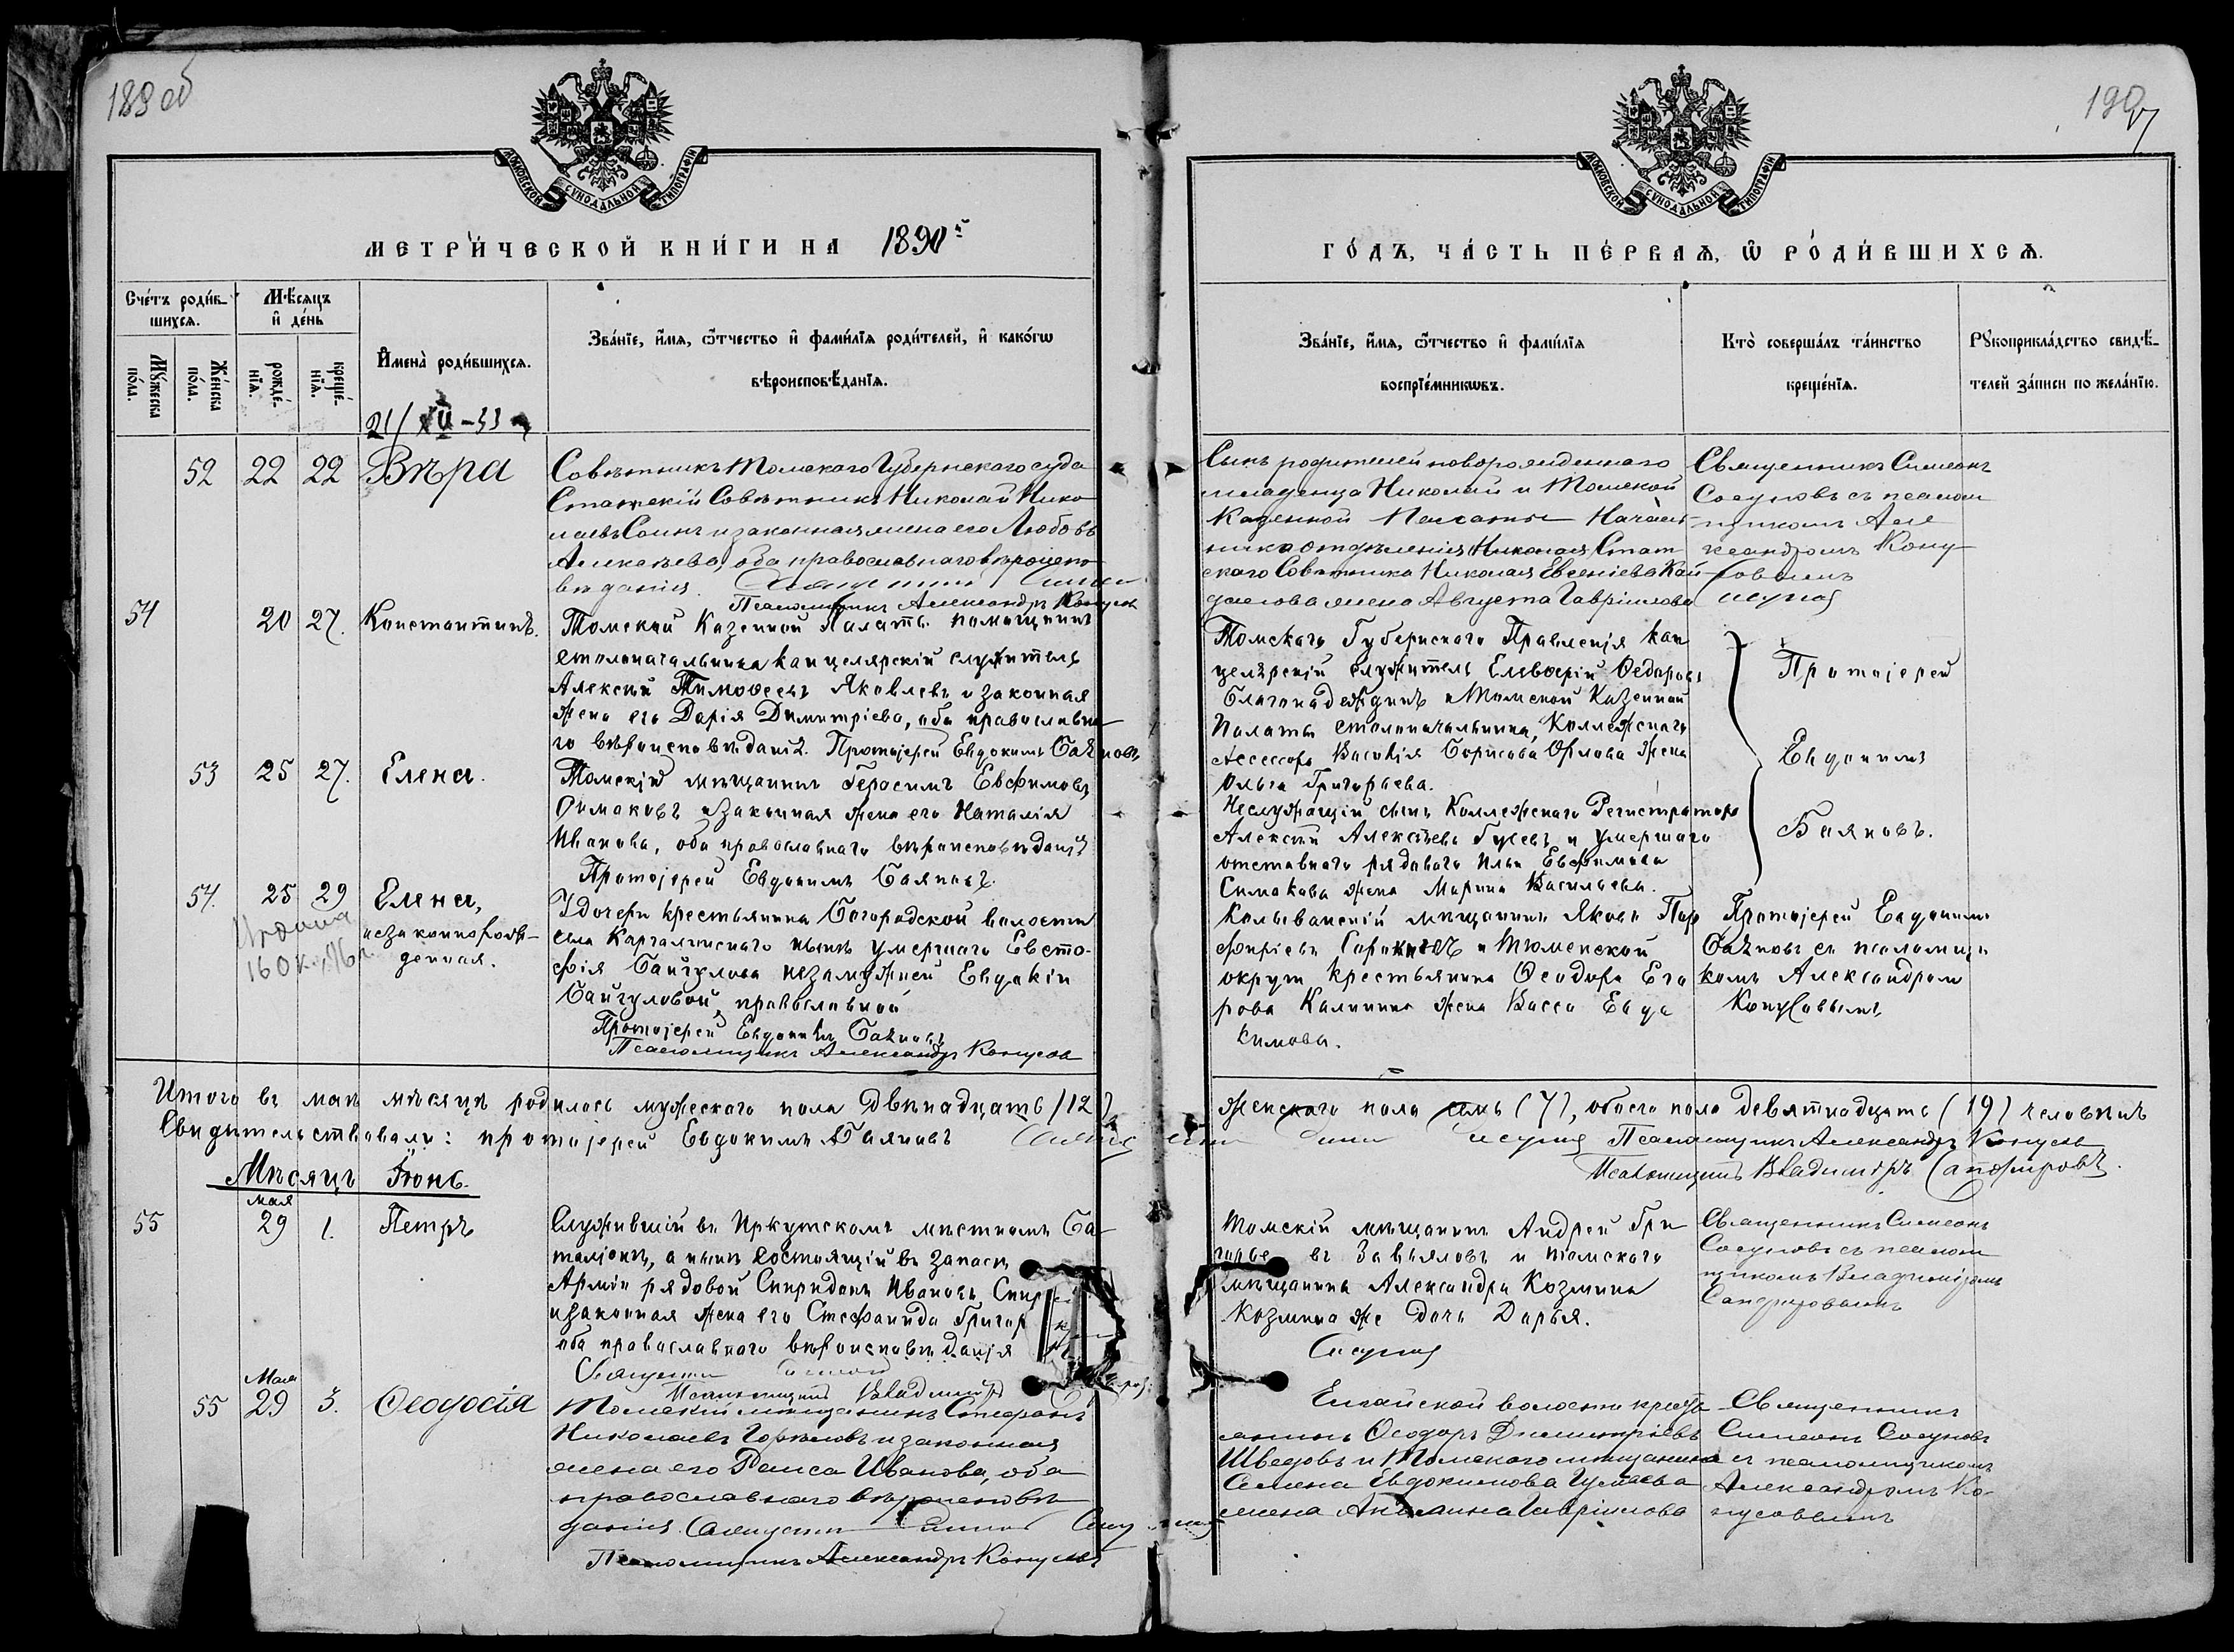 189 об
190
МОСКОВСКОЙ СѴНОДАЛЬНОЙ ТИПОГРАФІИ
МОСКОВСКОЙ СѴНОДАЛЬНОЙ ТИПОГРАФІИ
МЕТРИ́ЧЕСКОЙ КНИ́ГИ НА 1890й
ГО́ДЪ, ЧА́СТЬ ПЕ́РВАѦ, Ѽ РО́ДИ́ВШИХСѦ.
Сче́тъ роди́в-
шихсѧ.
Мꙋ́жеска по́ла.
Же́нска по́ла.
М́ѣсѧцъ
и҆ де́нь
рожде́-
нїѧ.
креще́-
нїѧ.
И҆мена̀ роди́вшихсѧ.
Зва́нїе, и҆́мѧ, ѻ҆́тчество и҆ фами́лїѧ роди́телей, и҆ како́гѡ
вѣроисповѣ́данїѧ.
Зва́нїе, и҆́мѧ, ѻ҆́тчество и҆ фами́лїѧ
воспрїе́мникѡвъ.
Кто̀ соверша́лъ та́инство
креще́нїѧ.
Рꙋкоприкла́дство свидѣ́-
телей за́писи по жела́нїю.
52 22 22 Вѣра
Совѣтникъ Томскаго Губернскаго суда
Статскій Совѣтникъ Николай Нико
лаевъ и законная жена его Любовь
Алексѣева, оба православнаго вѣроиспо
вѣданія.
Псаломщикъ Александръ Конусов
Сынъ родителей новорожденнаго
младенца Николай и Томской
Казенной Палаты Началь-
ника отдѣленія Николая Стат
скаго Совѣтника Николая Евгеніева
жена Августа Гавріилова
Священникъ Симеонъ
Сосуновъ съ псалом
щикомъ Але
ксандромъ Кону
совымъ
54 20 27. Константинъ.
Томской Казенной Палаты помощникъ
столоначальника канцелярскій служитель
Алексѣй Тимоѳеевъ Яковлевъ и законная
жена его Дарія Димитріева, оба православна-
го вѣроисповѣданія. Протоіерей Евдокимъ Баяновъ
Томскаго Губернскаго Правленія кан
целярскій служитель Елевѳерій Ѳедоровъ
Благонадеждинъ и Томской Казенной
Палаты столоначальника, Коллежскаго
Ассессора Василія Борисова Орлова жена
Ольга Григорьева.
Протоіерей
Евдокимъ
Баяновъ.
53 25 27. Елена.
Томскій мѣщанинъ Герасимъ Евфимовъ
Симаковъ и законная жена его Наталія
Иванова, оба православнаго вѣроисповѣданія
Протоіерей Евдокимъ Баяновъ.
Неслужащій сынъ Коллежскаго Регистратора
Алексѣй Алексѣевъ Гусевъ и умершаго
отставнаго рядоваго Ильи Евфимова
Симакова жена Марина Васильева.
54. 25 29 Елена,
незаконнорож-
денная.
У дочери крестьянина Богородской волости
села Каргалинскаго нынѣ умершаго Евсто-
фія Байгулова незамужней Евдокіи
Байгуловой, православной
Протоіерей Евдокимъ Баяновъ
Псаломщикъ Александръ Конусов
Колыванскій мѣщанинъ Яковъ Пор
фиріевъ и Тюменской
округи крестьянина Ѳеодора Его
рова Калинина жена Васса Евдо
кимова.
Протоіерей Евдокимъ
Баяновъ съ псаломщи
комъ Александромъ
Конусовымъ
Итого въ маѣ мѣсяцѣ родилось мужескаго пола двѣнадцать (12),
женскаго пола семь (7), обоего пола девятнадцать (19) человѣкъ
Свидѣтельствовали: протоіерей Евдокимъ Баяновъ
Псаломщикъ Александръ Конусов
Псаломщикъ Владиміръ Сапфировъ.
Мѣсяцъ Іюнь.
мая
55 29 1. Петръ
Служившій въ Иркутскомъ мѣстномъ Ба-
таліонѣ, а нынѣ состоящій въ запасѣ
Арміи рядовой Спиридонъ Ивановъ
и законная жена его Стефанида Григор
оба православнаго вѣроисповѣданія
Псаломщикъ Владиміръ
Томскій мѣщанинъ Андрей Гри
горьевъ Завьяловъ и томскаго
мѣщанина Александра Козмина
Козмина же дочь Дарья.
Священникъ Симеонъ
Сосуновъ съ псалом
щикомъ Владиміромъ
Сапфировымъ
Мая
55 29 3. Ѳеодосія
Томскій мѣщанинъ Стефанъ
Николаевъ и законная
жена его Раиса Иванова, оба
православнаго вѣроисповѣ
данія.
Псаломщикъ Александръ Конусов
Елгайской волости кресть
янинъ Ѳеодоръ Димитріевъ
Шведовъ и Томскаго мѣщанина
Семена Евдокимова
жена Гавріилова
Священникъ
Симеонъ Сосуновъ
съ псаломщикомъ
Александромъ Ко-
нусовымъ